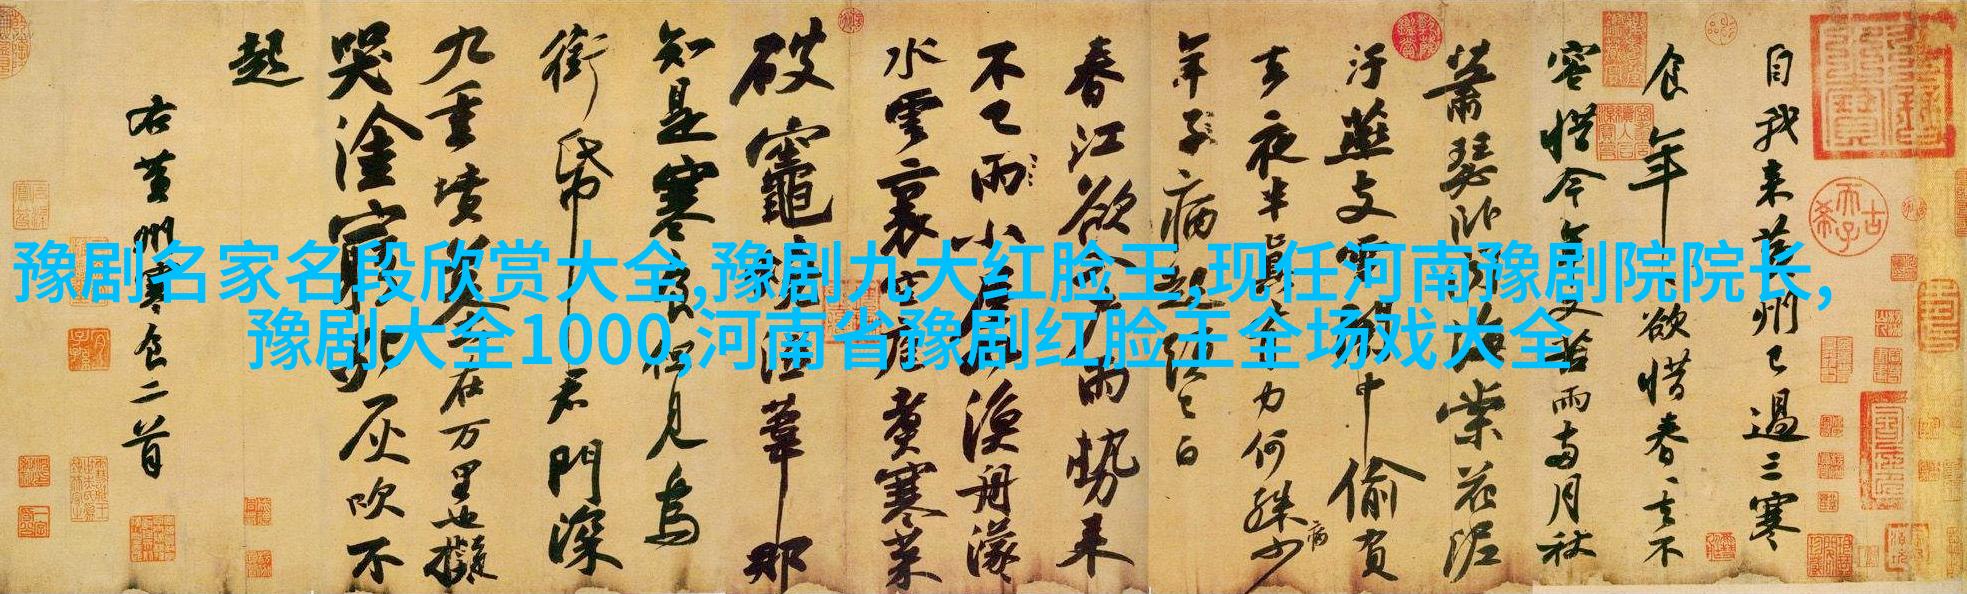 豫剧名家名段欣赏大全,豫剧九大红脸王,现任河南豫剧院院长,
豫剧大全1000,河南省豫剧红脸王全场戏大全
自我来黄州已過三寒
食年、欲惜春、去不
容惜今年又苦雨兩月秋
蕭瑟卧聞海棠花泥
汙燕支雪闇中偷負
去夜半真有力何殊少
病
年子病起須已白
春江欲入户雨勢来
不已雨小屋如漁舟濛
水雲裏空庖煮寒菜
破竈燒濕葦那
知是寒食但見烏
銜帋君門深
九重墳墓在万里也擬
哭塗窮死灰吹不
起
右黄州寒食二首